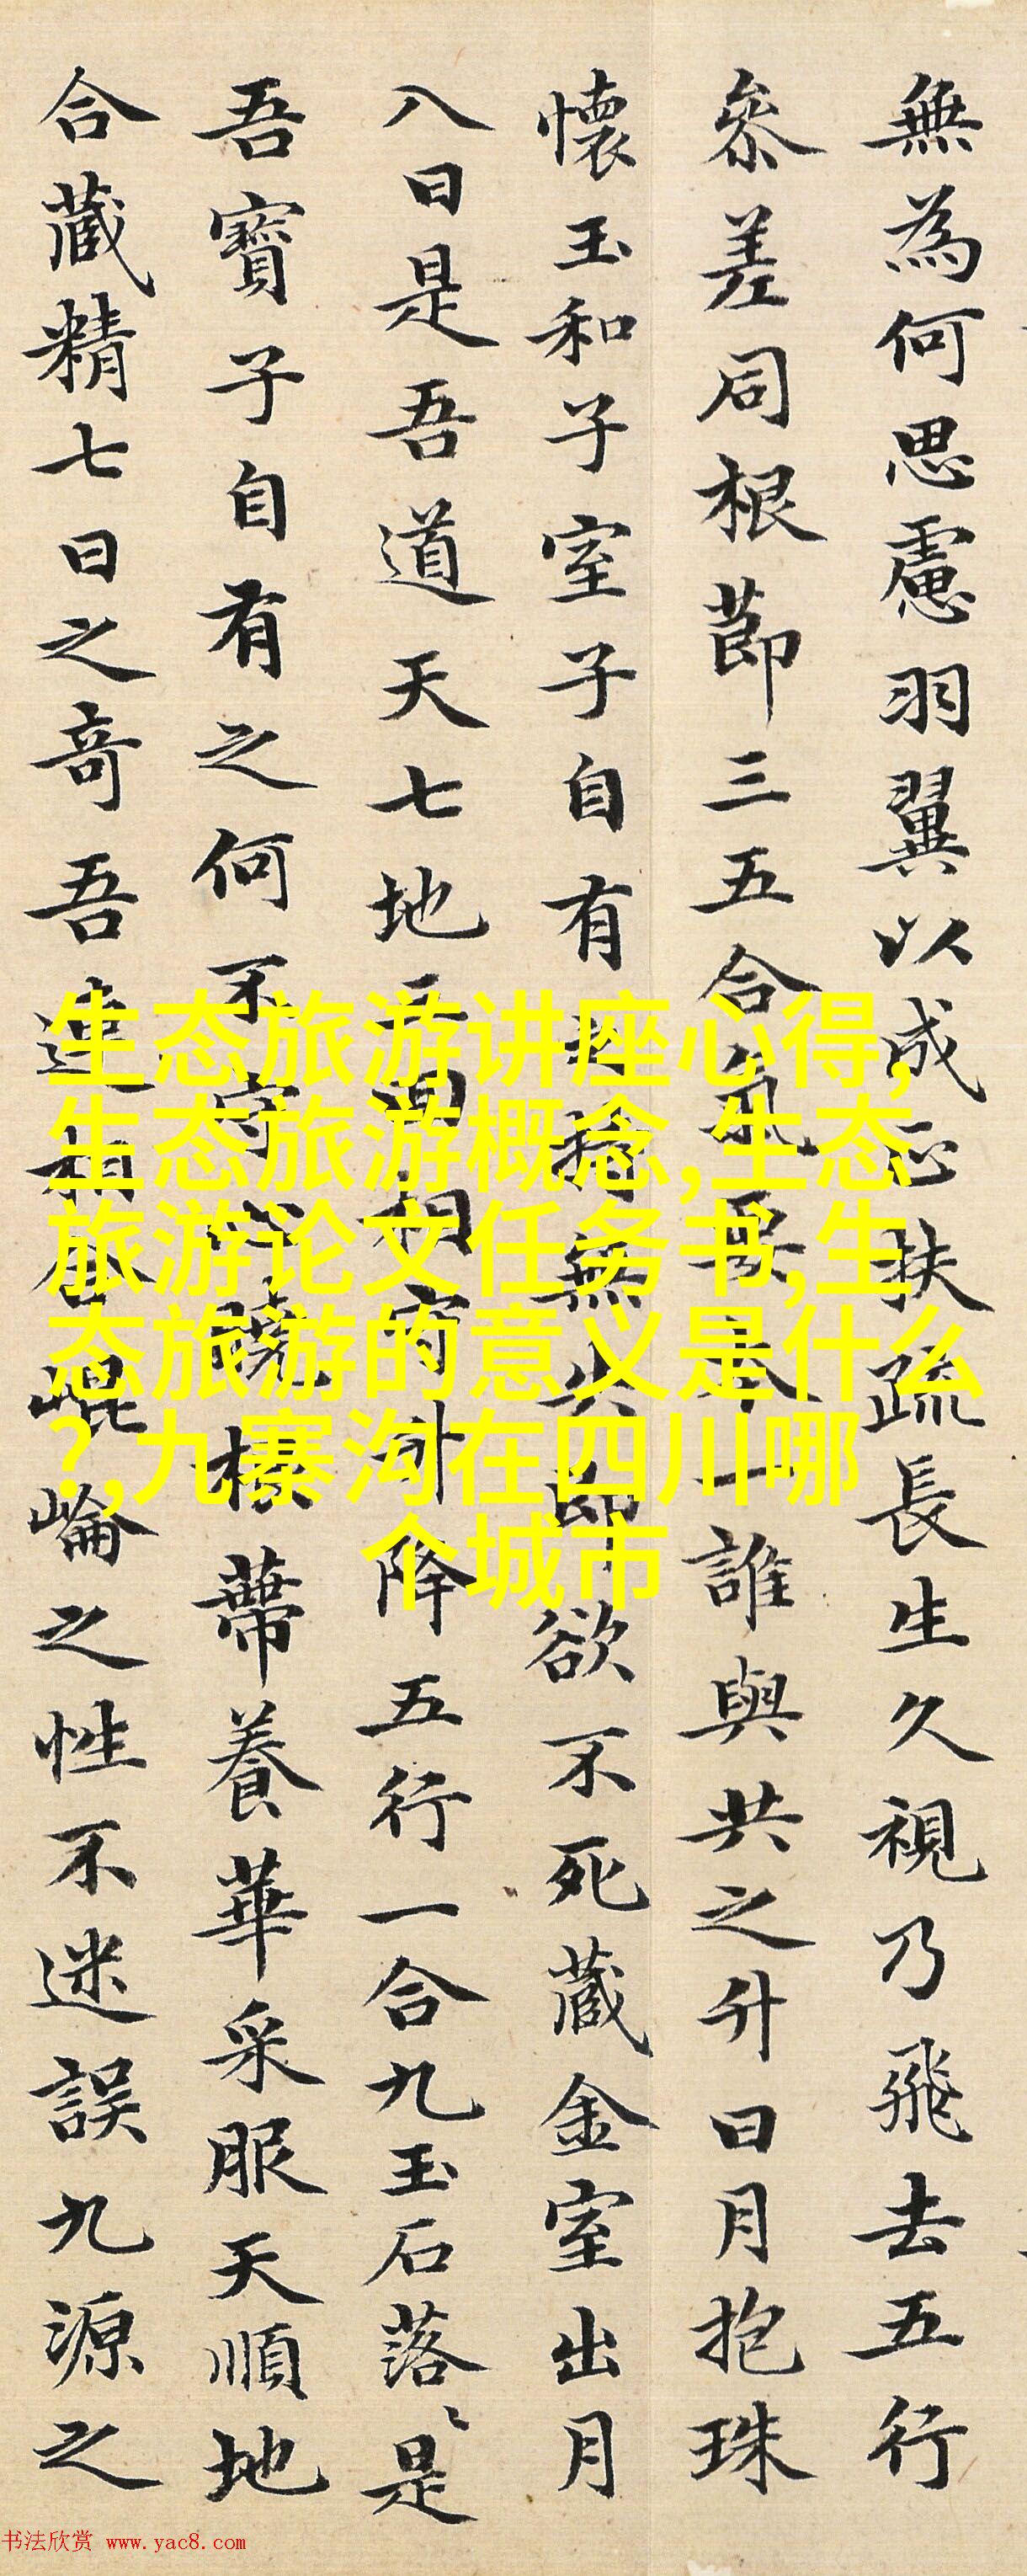 無為何思慮羽翼以成正扶疏長生久視乃飛去五行
參差同根節三五合氣要本一誰與共之升日月抱珠
懷玉和子室子自有持捨無失即欲不死藏金室出月
八日是吾道天七地三回相守升降五行一合九玉石落〻是
吾寶子自有之何不守心曉根蔕養華采服天順地
合藏精七日之奇吾連相合崐崘之性不迷誤九源之
生态旅游讲座心得,
生态旅游概念,生态
旅游论文任务书,生
态旅游的意义是什么
?,九寨沟在四川哪
个城市
书法欣赏 www.yac8.com